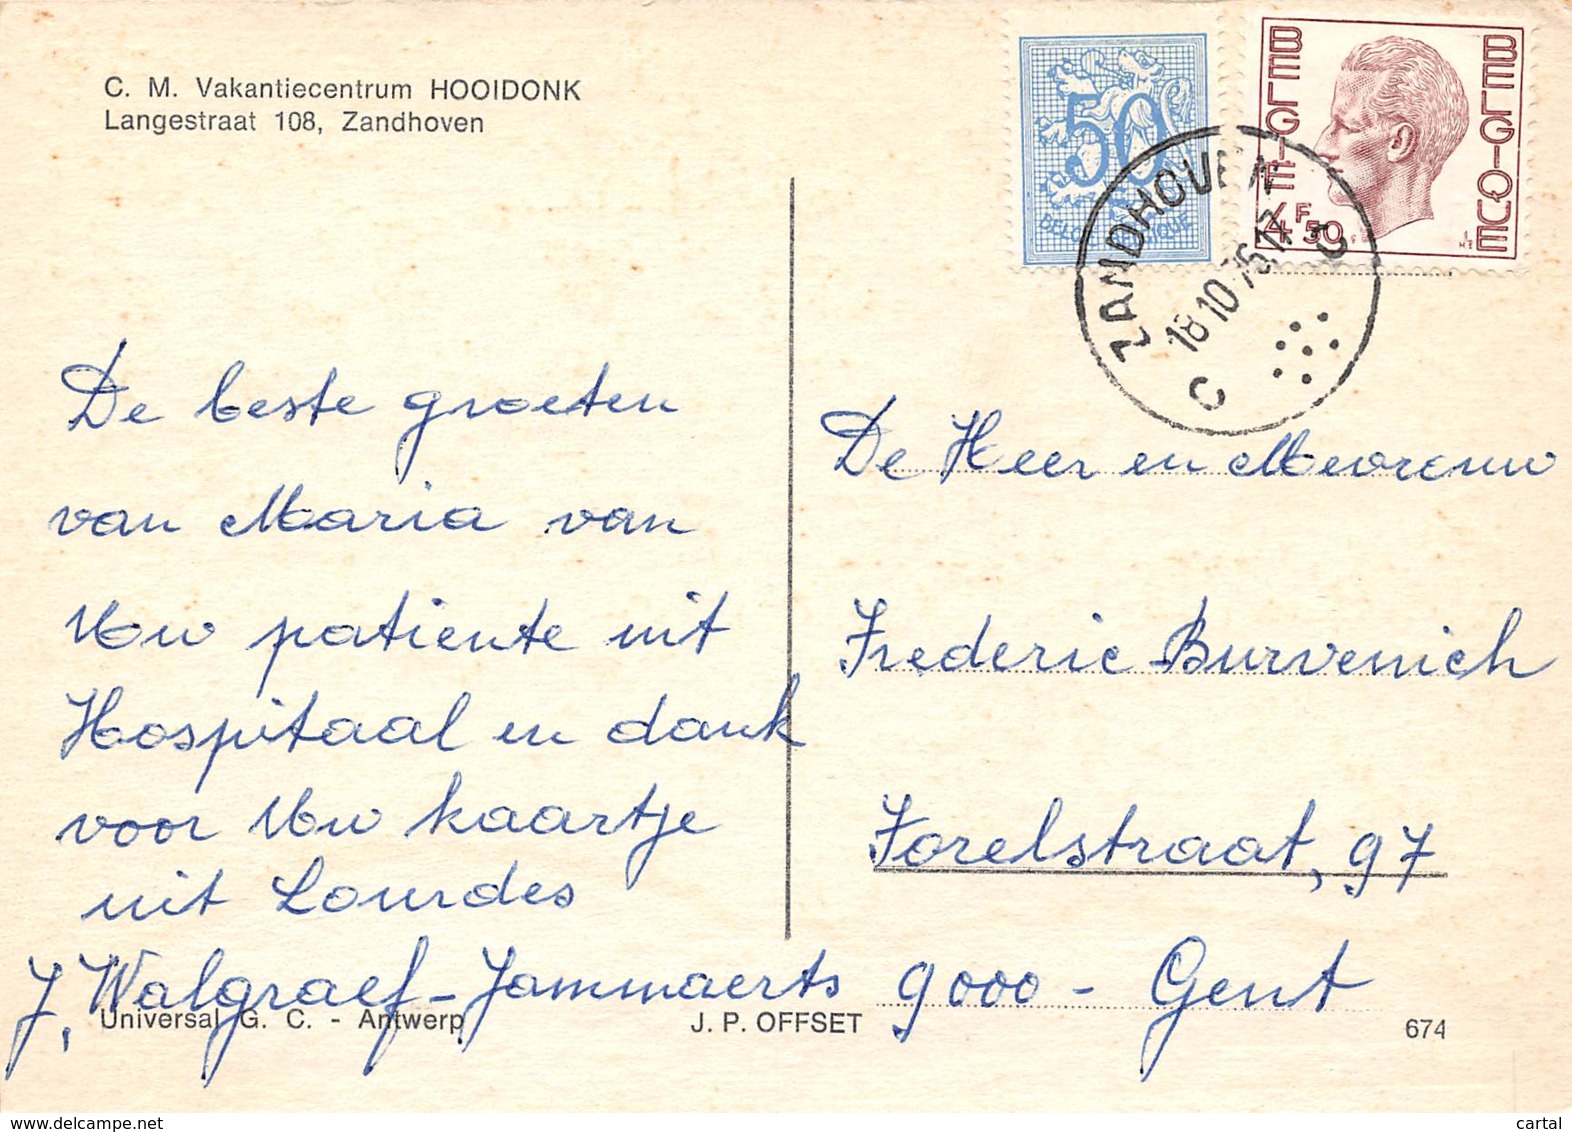 C. M. Vakantiecentrum HOOIDONK
Langestraat 108, Zandhoven
50
BELGIE BELGIQUE
BELGIE
BELGIQUE
4F50
ZANDHOVEN
18 10 76 17
C C
De beste groeten
van Maria van
Uw patiente uit
Hospitaal en dank
voor Uw kaartje
uit Lourdes
J. Walgraef-Jammaerts
De Heer en Mevrouw
Frederic Burvenich
Forelstraat, 97
9000 - Gent
Universal G. C. - Antwerp
J. P. OFFSET
674
www.delcampe.net
cartal